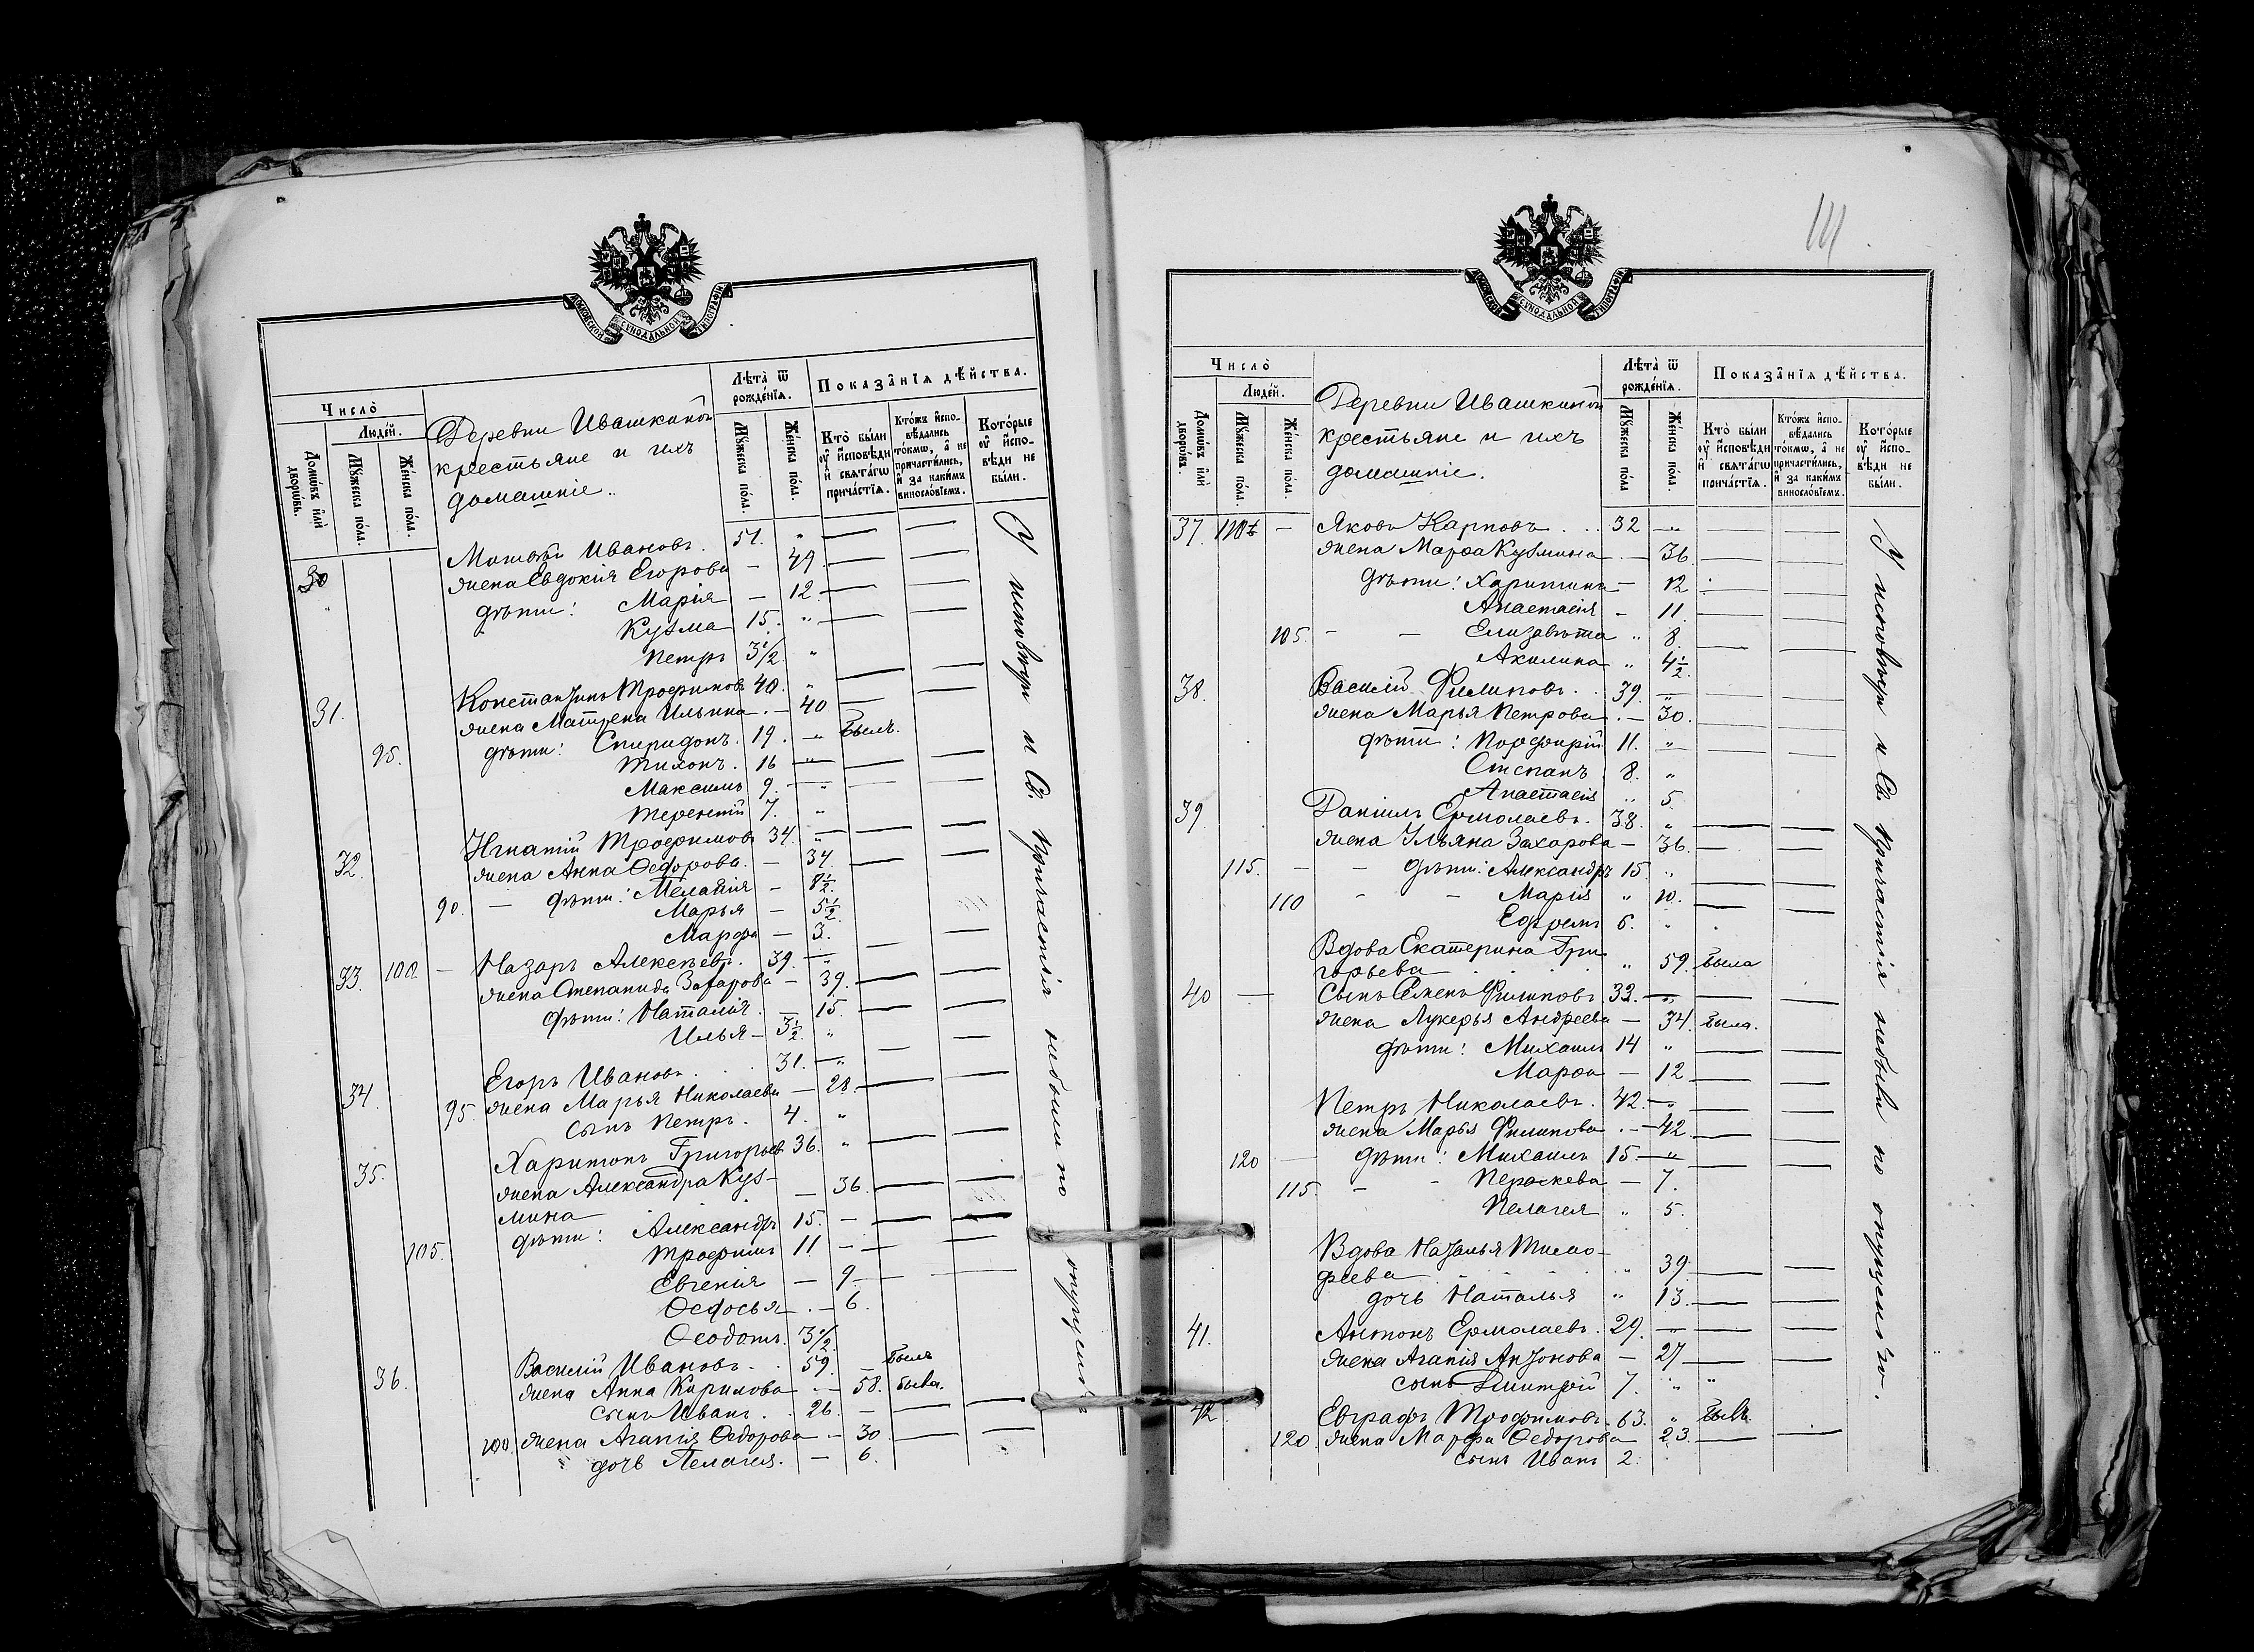 МОСКОВСКОЙ СУНОДАЛЬНОЙ ТИПОГРАФІИ
Число̀
Людéй.
Домѡ́въ и҆лѝ дворѡ́въ.
Мꙋ́жеска по́ла.
Же́нска по́ла.
Деревни Ивашкиной
крестьяне и ихъ
домашніе.
Лѣта̀ ѿ рожде́нїѧ.
Мꙋ́жеска по́ла.
Же́нска по́ла.
Показа̑нїѧ дѣ́йства.
Кто̀ бы́ли оу҆ и҆сповѣ́ди и҆ свѧта́гѡ прича́стїѧ.
Кто́жъ и҆спо-вѣ́дались то́кмѡ, а҆ не причасти́лись, и҆ за каки́мъ винослѡ́вїемъ.
Кото́рые оу҆ и҆спо-вѣ́ди не бы́ли.
30 Матвѣй Ивановъ. 51. "
жена Евдокія Егорова — 49
дѣти: Марія — 12.
Кузма 15. "
Петръ 3½. "
31. Константинъ Трофимовъ 40. "
жена Матрена Ильина. — 40
95. дѣти: Спиридонъ. 19. — " Былъ.
Тихонъ. 16 "
Максимъ 9. — "
Терентій 7. "
32. Игнатій Трофимовъ 34. "
жена Анна Ѳедорова. — 34.
90. — дѣти: Меланія — 8½.
Марья — 5½
Марфа — 3.
33. 100. — Назаръ Алексѣевъ. 39. "
жена Степанида Захарова — 39.
дѣти: Наталія. — 15.
Илья — 3½. "
34. Егоръ Ивановъ. 31. — "
95. жена Марья Николаева — 28.
сынъ Петръ. 4. "
35. Харитонъ Григорьев 36. "
жена Александра Куз-
мина — 36.
105. дѣти: Александръ 15. —
Трофимъ 11 —
Евгенія — 9.
Ѳедосья. — 6.
Ѳеодотъ. 3½.
36. Василій Ивановъ. 59. — Былъ
жена Анна Кирилова — 58. Была.
сынъ Иванъ. 26. —
100. жена Агапія Ѳедорова — 30
дочь Пелагея. — 6.
У исповѣди и Св. причастія небыли по опущенію
111
МОСКОВСКОЙ СУНОДАЛЬНОЙ ТИПОГРАФІИ
Число̀
Людéй.
Домѡ́въ и҆лѝ дворѡ́въ.
Мꙋ́жеска по́ла.
Же́нска по́ла.
Деревни Ивашкиной
крестьяне и ихъ
домашніе.
Лѣта̀ ѿ рожде́нїѧ.
Мꙋ́жеска по́ла
Же́нска по́ла.
Показа̑нїѧ дѣ́йства.
Кто̀ бы́ли оу҆ и҆сповѣ́ди и҆ свѧта́гѡ прича́стїѧ.
Кто́жъ и҆спо-вѣ́дались то́кмѡ, а҆ не причасти́лись, и҆ за каки́мъ винослѡ́вїемъ.
Кото́рые оу҆ и҆спо-вѣ́ди не бы́ли.
37. 110 — Яковъ Карповъ 32 — "
жена Марѳа Кузмина — 36.
дѣти: Харитина — 12
Анастасія — 11.
105. — — Елизавѣта " 8.
Акилина " 4½.
38. Василій Филиповъ. 39. "
жена Марья Петрова. — 30.
дѣти: Порфирій 11. "
Степанъ 8. "
Анастасія " 5.
39. Даніилъ Ермолаевъ. 38. "
жена Ульяна Захарова — 36.
115. — — дѣти: Александръ 15. "
110 — — Марія " 10.
Ефремъ 6. "
Вдова Екатерина Гри
горьева " 59. Была
40 — сынъ Семенъ Филиповъ 33. — "
жена Лукерья Андреева — 34. Была.
дѣти: Михаилъ 14 "
Марѳа — 12
Петръ Николаевъ. 42. — "
жена Марья Филипова. — 42
120 — дѣти: Михаилъ 15. — "
115. — — Параскева — 7.
Пелагея " 5.
Вдова Наталья Тимо-
феева " 39.
дочь Наталья " 13.
41. Антонъ Ермолаевъ. 29. — "
жена Агапія Антонова — 27
сынъ Дмитрій 7. " "
42. Евграфъ Трофимовъ. 63. " Былъ.
120. жена Марфа Ѳедорова 23.
сынъ Иванъ 2.
У исповѣди и Св. причастія небыли по опущенію.